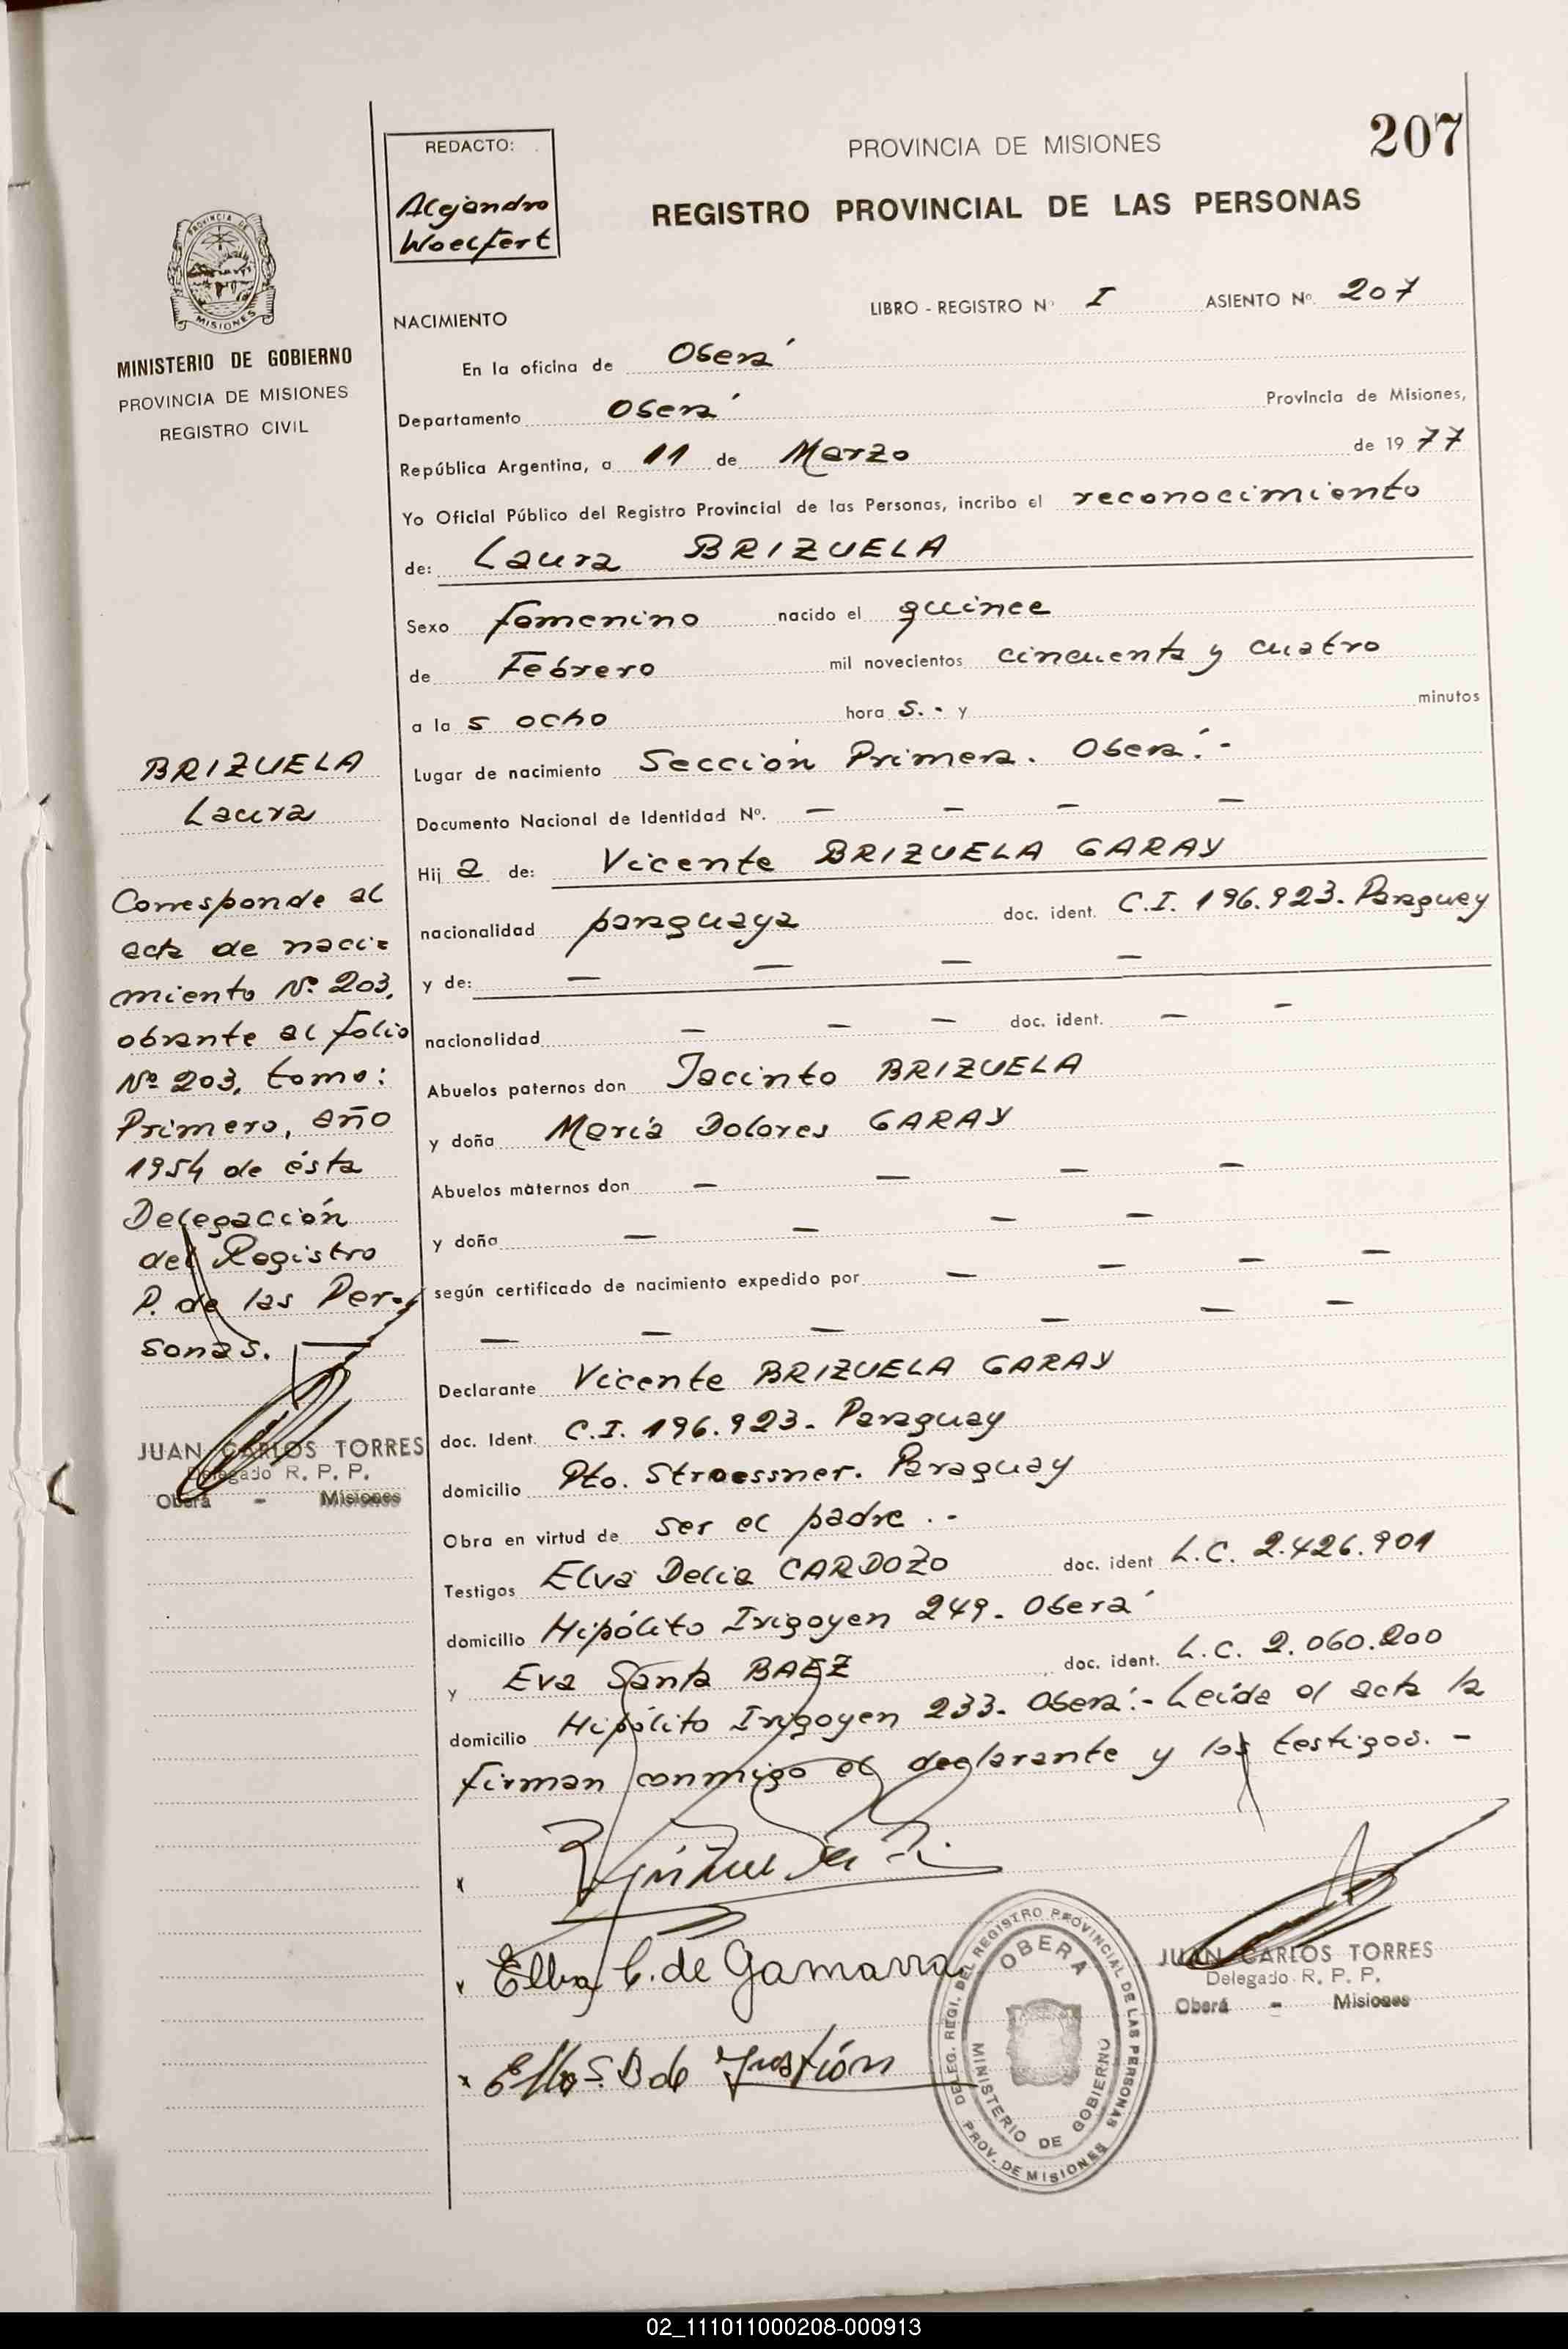 207
REDACTO:
Alejandro
Woelfert
PROVINCIA DE MISIONES
REGISTRO PROVINCIAL DE LAS PERSONAS
PROVINCIA DE
MISIONES
MINISTERIO DE GOBIERNO
PROVINCIA DE MISIONES
REGISTRO CIVIL
LIBRO - REGISTRO Nº I ASIENTO Nº. 207
NACIMIENTO
En la oficina de Oberá
Departamento Oberá Provincia de Misiones,
República Argentina, a 11 de Marzo de 1977
Yo Oficial Público del Registro Provincial de las Personas, incribo el reconocimiento
de: Laura BRIZUELA
Sexo femenino nacido el quince
de Febrero mil novecientos cincuenta y cuatro
a la s ocho hora s.- y minutos
Lugar de nacimiento Sección Primera. Oberá.-
Documento Nacional de Identidad Nº. — — — —
Hij a de: Vicente BRIZUELA GARAY
nacionalidad paraguaya doc. ident. C.I. 196.923. Paraguay
y de: — — — —
nacionalidad — — — doc. ident. — —
Abuelos paternos don Jacinto BRIZUELA
y doña María Dolores GARAY
Abuelos maternos don — — — —
y doña — — — —
según certificado de nacimiento expedido por — — — —
— — — — — —
Declarante Vicente BRIZUELA GARAY
doc. Ident. C.I. 196.923- Paraguay
domicilio Pto. Stroessner. Paraguay
Obra en virtud de ser el padre.-
Testigos Elva Delia CARDOZO doc. ident L.C. 2.426.901
domicilio Hipólito Irigoyen 249- Oberá
y Eva Santa BAEZ doc. ident. L.C. 2.060.200
domicilio Hipólito Irigoyen 233- Oberá.- Leída el acta la
firman conmigo el declarante y los testigos. -
BRIZUELA
Laura
Corresponde al
acta de naci=
miento Nº 203,
obrante al folio
Nº 203, tomo:
Primero, año
1954 de ésta
Delegación
del Registro
P. de las Per-
sonas.
JUAN CARLOS TORRES
Delegado R. P. P.
Oberá - Misiones
x
x Elba C. de Gamarra
x S. B de
DELEG. REGI. DEL REGISTRO PROVINCIAL DE LAS PERSONAS
OBERA
MINISTERIO DE GOBIERNO
PROV. DE MISIONES
JUAN CARLOS TORRES
Delegado R. P. P.
Oberá - Misiones
02_111011000208-000913